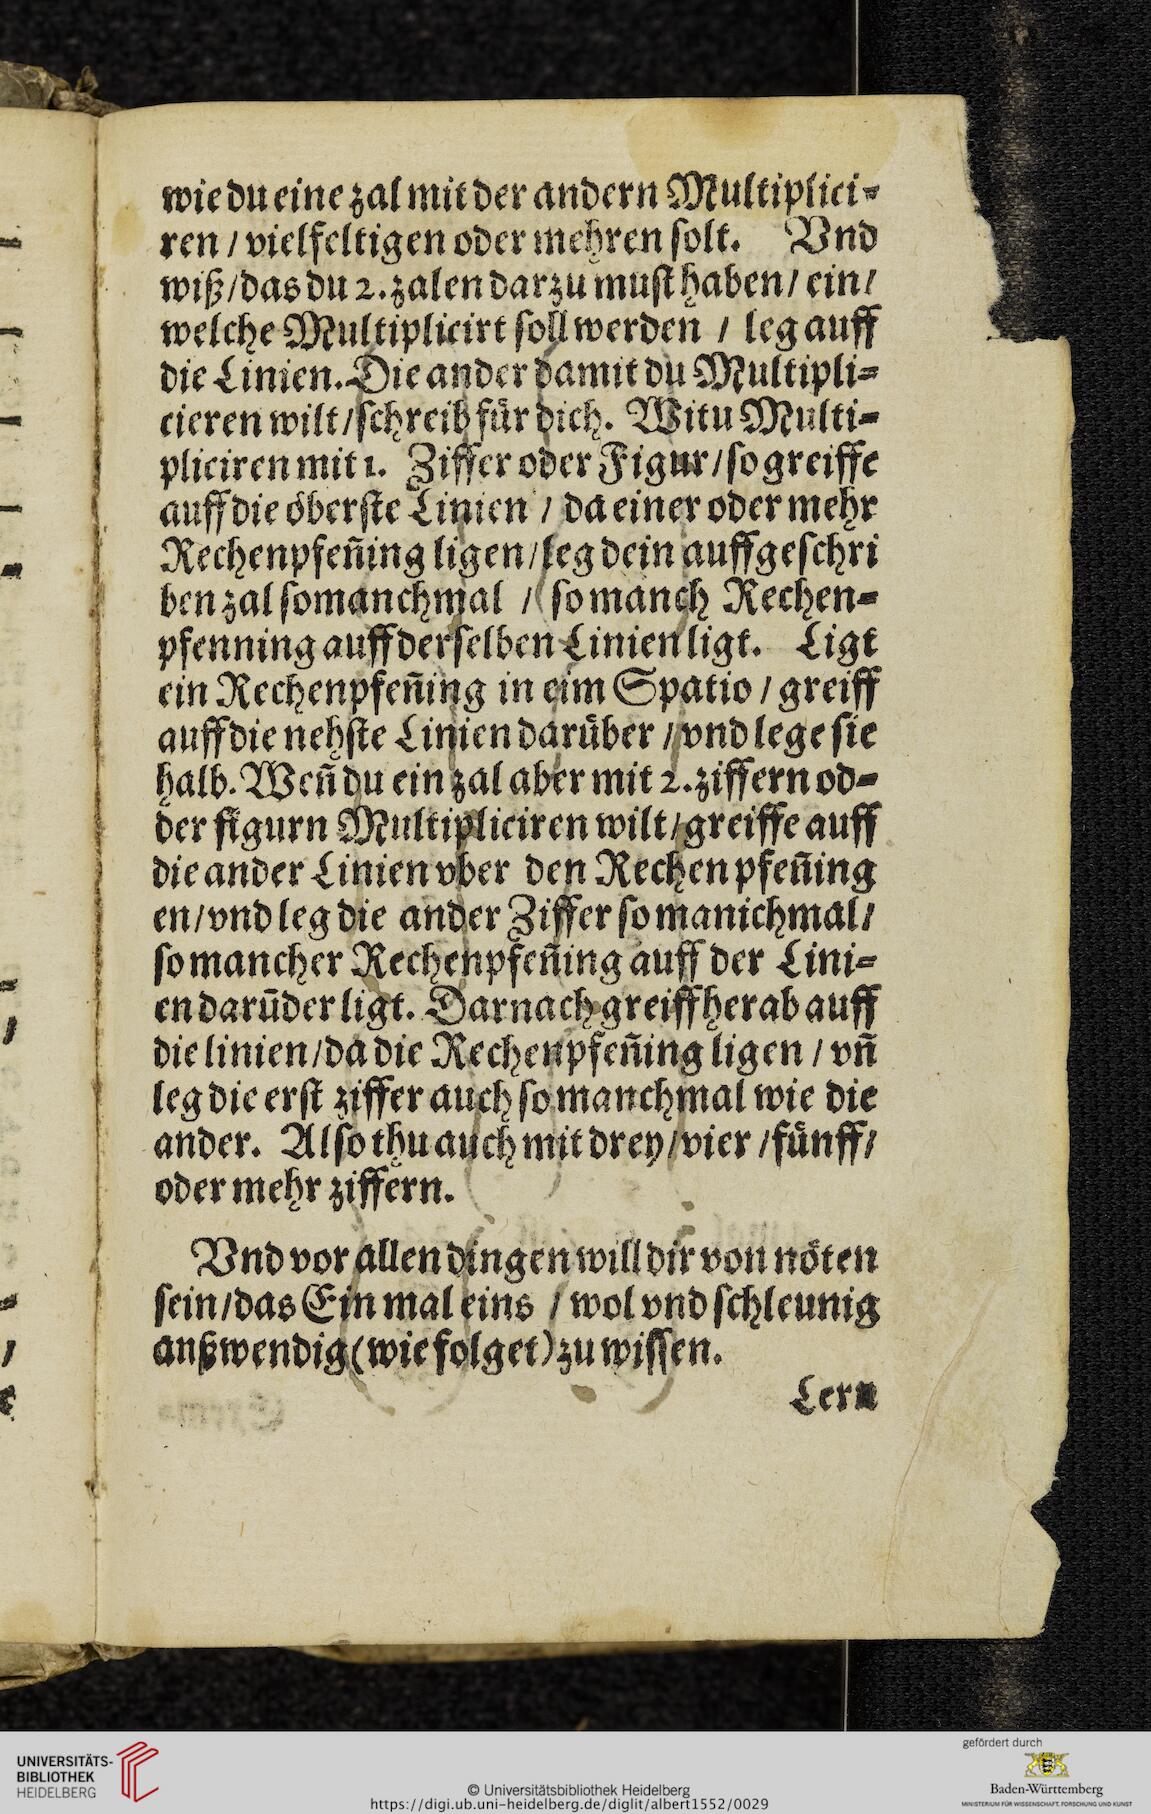 wie du eine zal mit der andern Multiplici⸗
ren / vielfeltigen oder mehren solt. Vnd
wiß / das du 2. zalen darzu must haben / ein /
welche Multiplicirt soll werden / leg auff
die Linien. Die ander damit du Multipli⸗
cieren wilt / schreib für dich. Witu Multi⸗
pliciren mit 1. Ziffer oder Figur / so greiffe
auff die öberste Linien / da einer oder mehr
Rechenpfen̄ing ligen / leg dein auffgeschri
ben zal somanchmal / so manch Rechen⸗
pfenning auff derselben Linien ligt. Ligt
ein Rechenpfen̄ing in eim Spatio / greiff
auff die nehste Linien darüber / vnd lege sie
halb. Wen̄ du ein zal aber mit 2. ziffern od⸗
der figurn Multipliciren wilt / greiffe auff
die ander Linien vber den Rechenpfen̄ing
en / vnd leg die ander Ziffer so manichmal /
so mancher Rechenpfen̄ing auff der Lini⸗
en darūder ligt. Darnach greiff herab auff
die linien / da die Rechenpfen̄ing ligen / vn̄
leg die erst ziffer auch so manchmal wie die
ander. Also thu auch mit drey / vier / fünff /
oder mehr ziffern.
Vnd vor allen dingen will dir von nöten
sein / das Ein mal eins / wol vnd schleunig
außwendig (wie folget) zu wissen.
Lern
UNIVERSITÄTS-
BIBLIOTHEK
HEIDELBERG
© Universitätsbibliothek Heidelberg
https://digi.ub.uni-heidelberg.de/diglit/albert1552/0029
gefördert durch
Baden-Württemberg
MINISTERIUM FÜR WISSENSCHAFT, FORSCHUNG UND KUNST